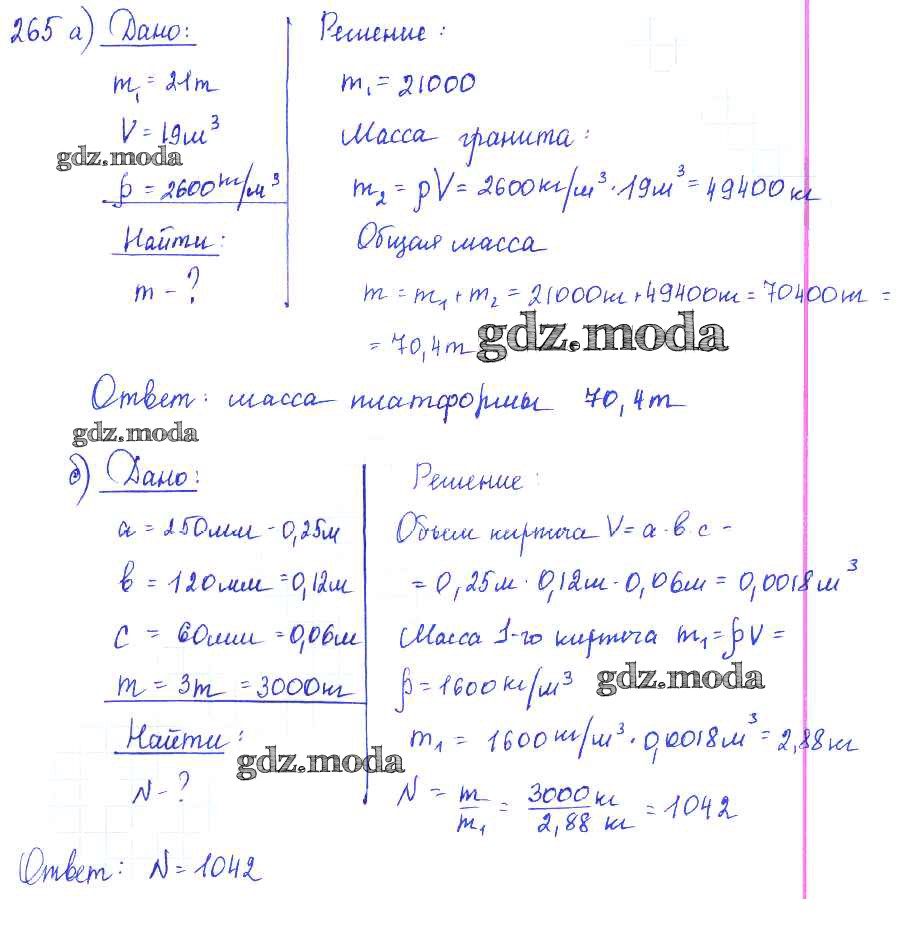 265 а) Дано:
m₁ = 21т
V = 19м³
gdz.moda
ρ = 2600кг/м³
Найти:
m - ?
Решение:
m₁ = 21000
Масса гранита:
m₂ = ρV = 2600кг/м³ · 19м³ = 49400кг
Общая масса
m = m₁ + m₂ = 21000кг + 49400кг = 70400кг =
= 70,4т
gdz.moda
Ответ: масса платформы 70,4т
gdz.moda
б) Дано:
a = 250мм - 0,25м
в = 120мм = 0,12м
c = 60мм = 0,06м
m = 3т = 3000кг
Найти:
gdz.moda
N - ?
Решение:
Объем кирпича V = a · в · c -
= 0,25м · 0,12м · 0,06м = 0,0018м³
Масса 1-го кирпича m₁ = ρV =
ρ = 1600кг/м³
gdz.moda
m₁ = 1600кг/м³ · 0,0018м³ = 2,88кг
N = m/m₁ = 3000кг/2,88кг = 1042
Ответ: N = 1042